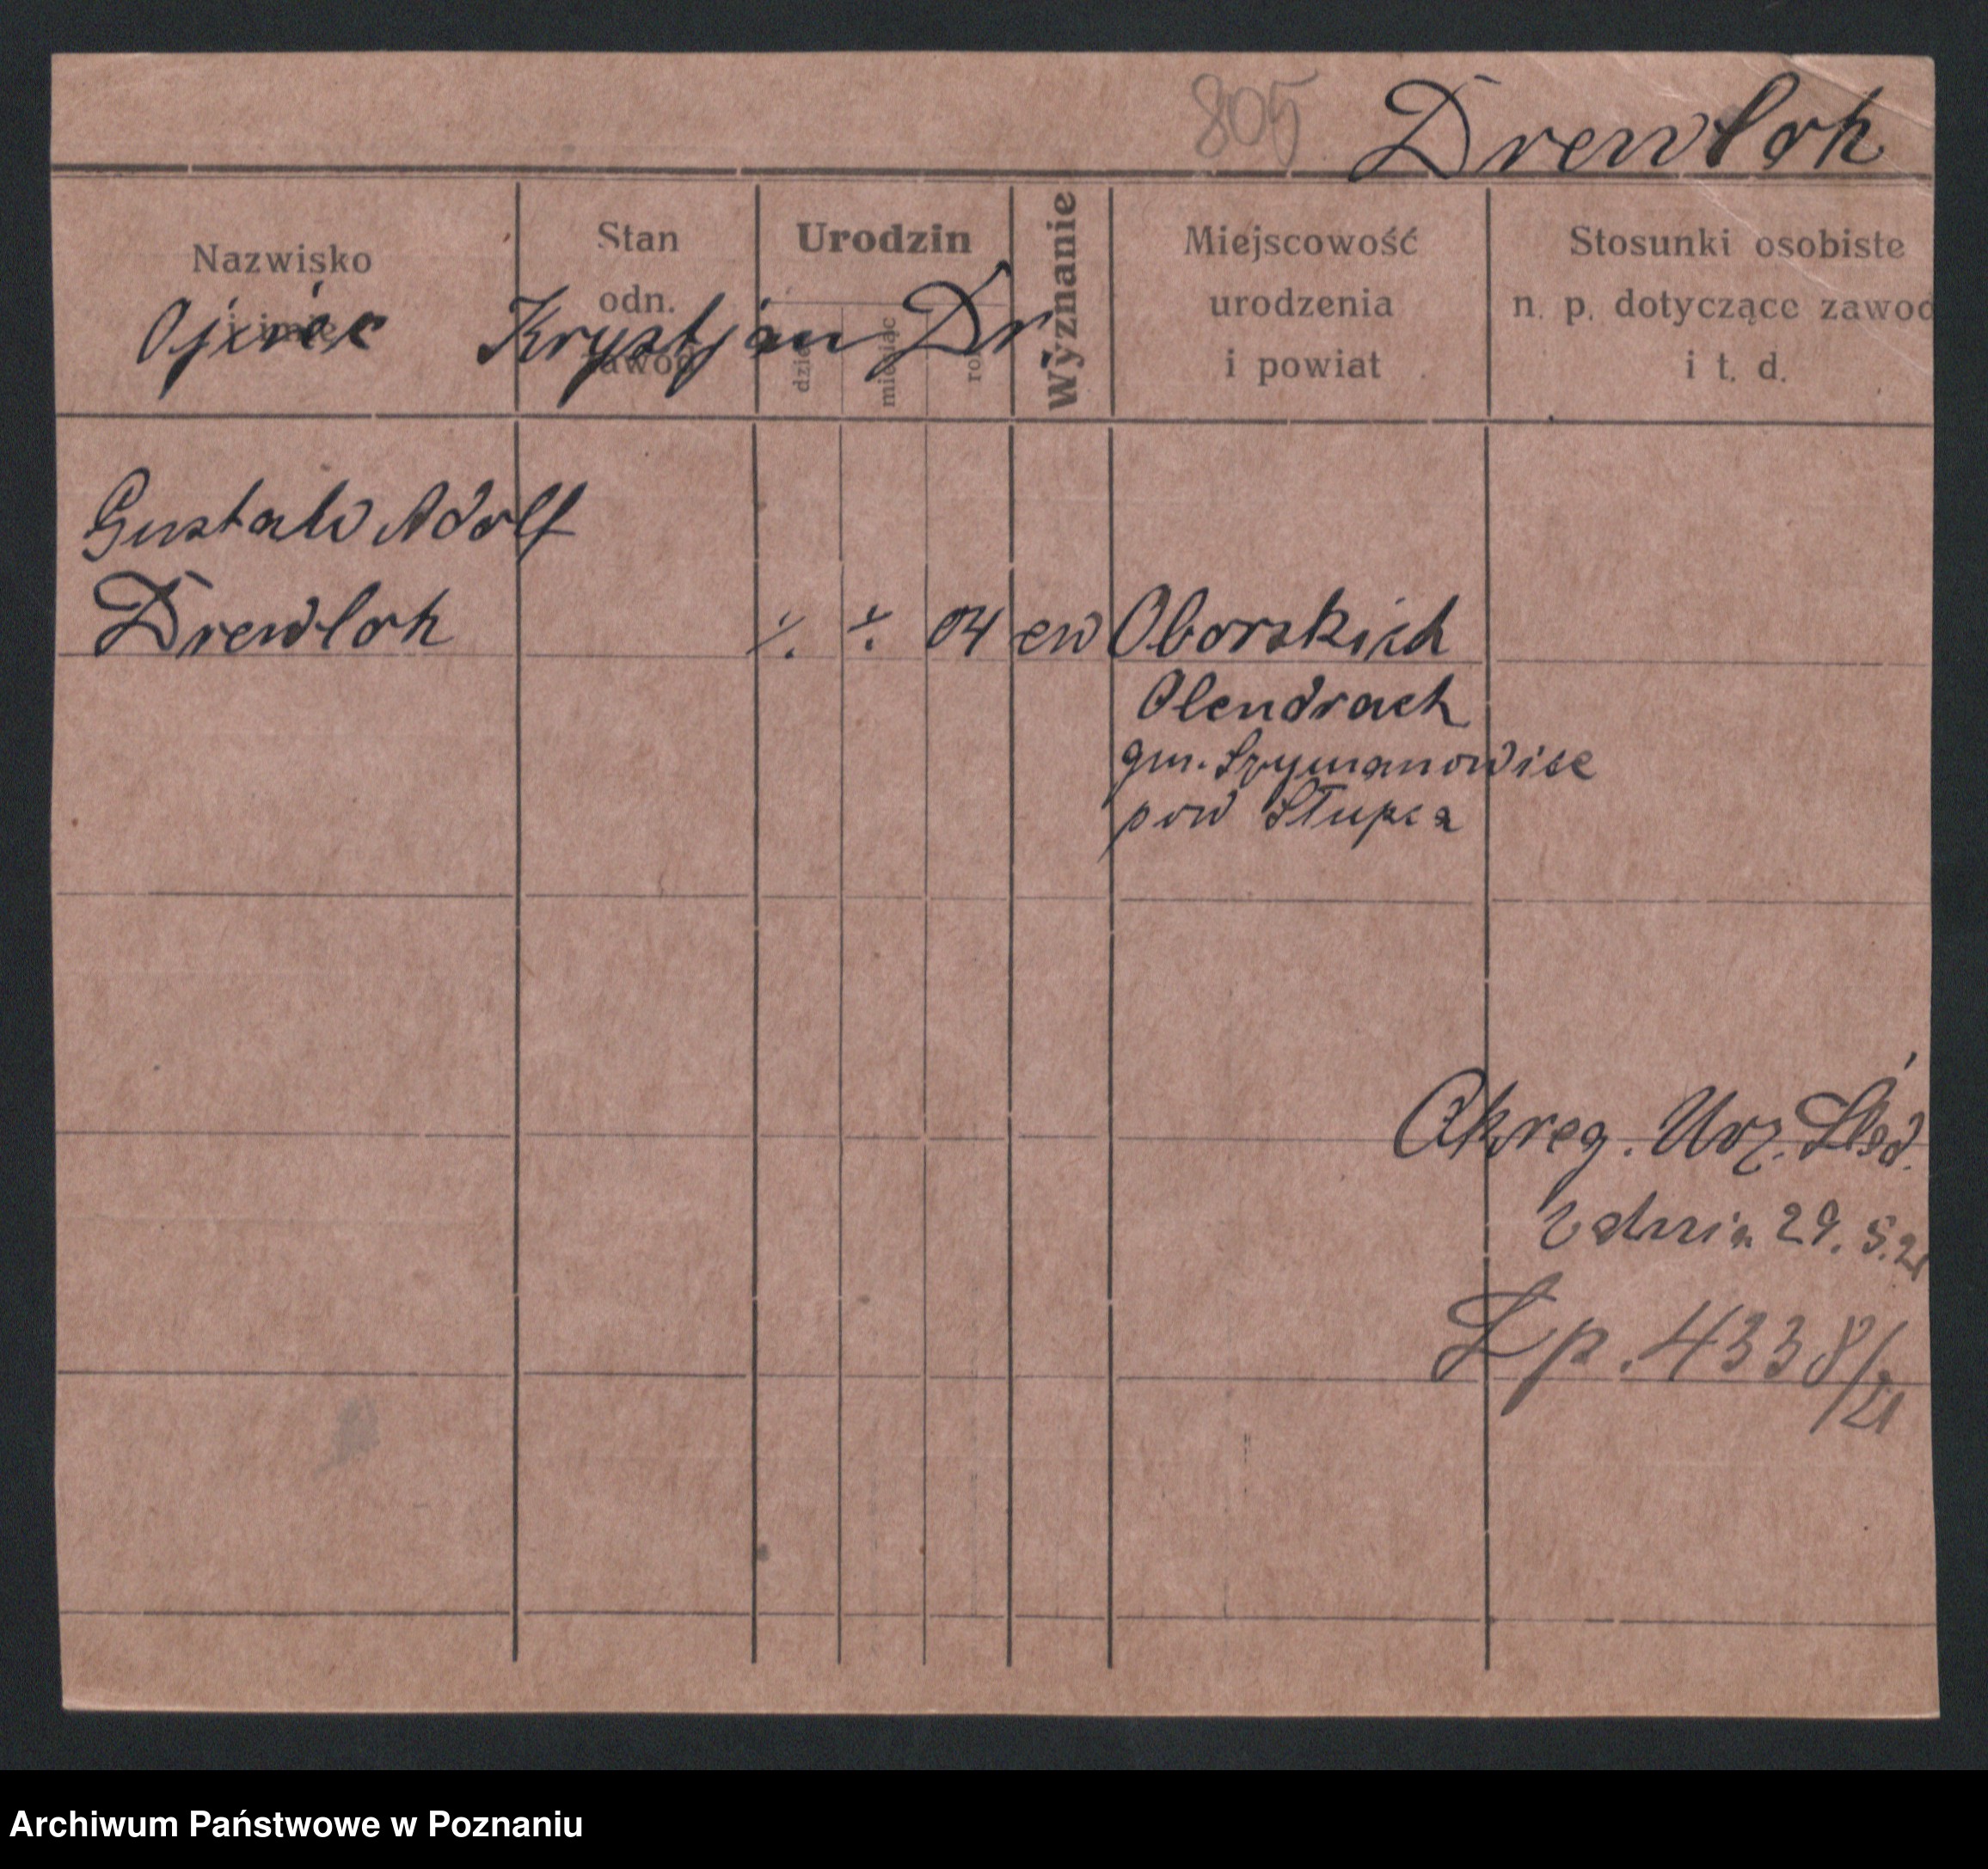 805 Drewloh
Nazwisko i imię
Stan odn. zawód
Urodzin
dzień
miesiąc
rok
Wyznanie
Miejscowość urodzenia i powiat
Stosunki osobiste
n. p. dotyczące zawod
i t. d.
Ojciec Krystjan Dr.
Gustaw Adolf
Drewloh ./. ./. 04 ew Oborskich
Olendrach
gm. Szymanowice
pow Słupca
Okreg. Urz. Śled.
z dnia 29. 5. 21
Lp. 4338/21
Archiwum Państwowe w Poznaniu